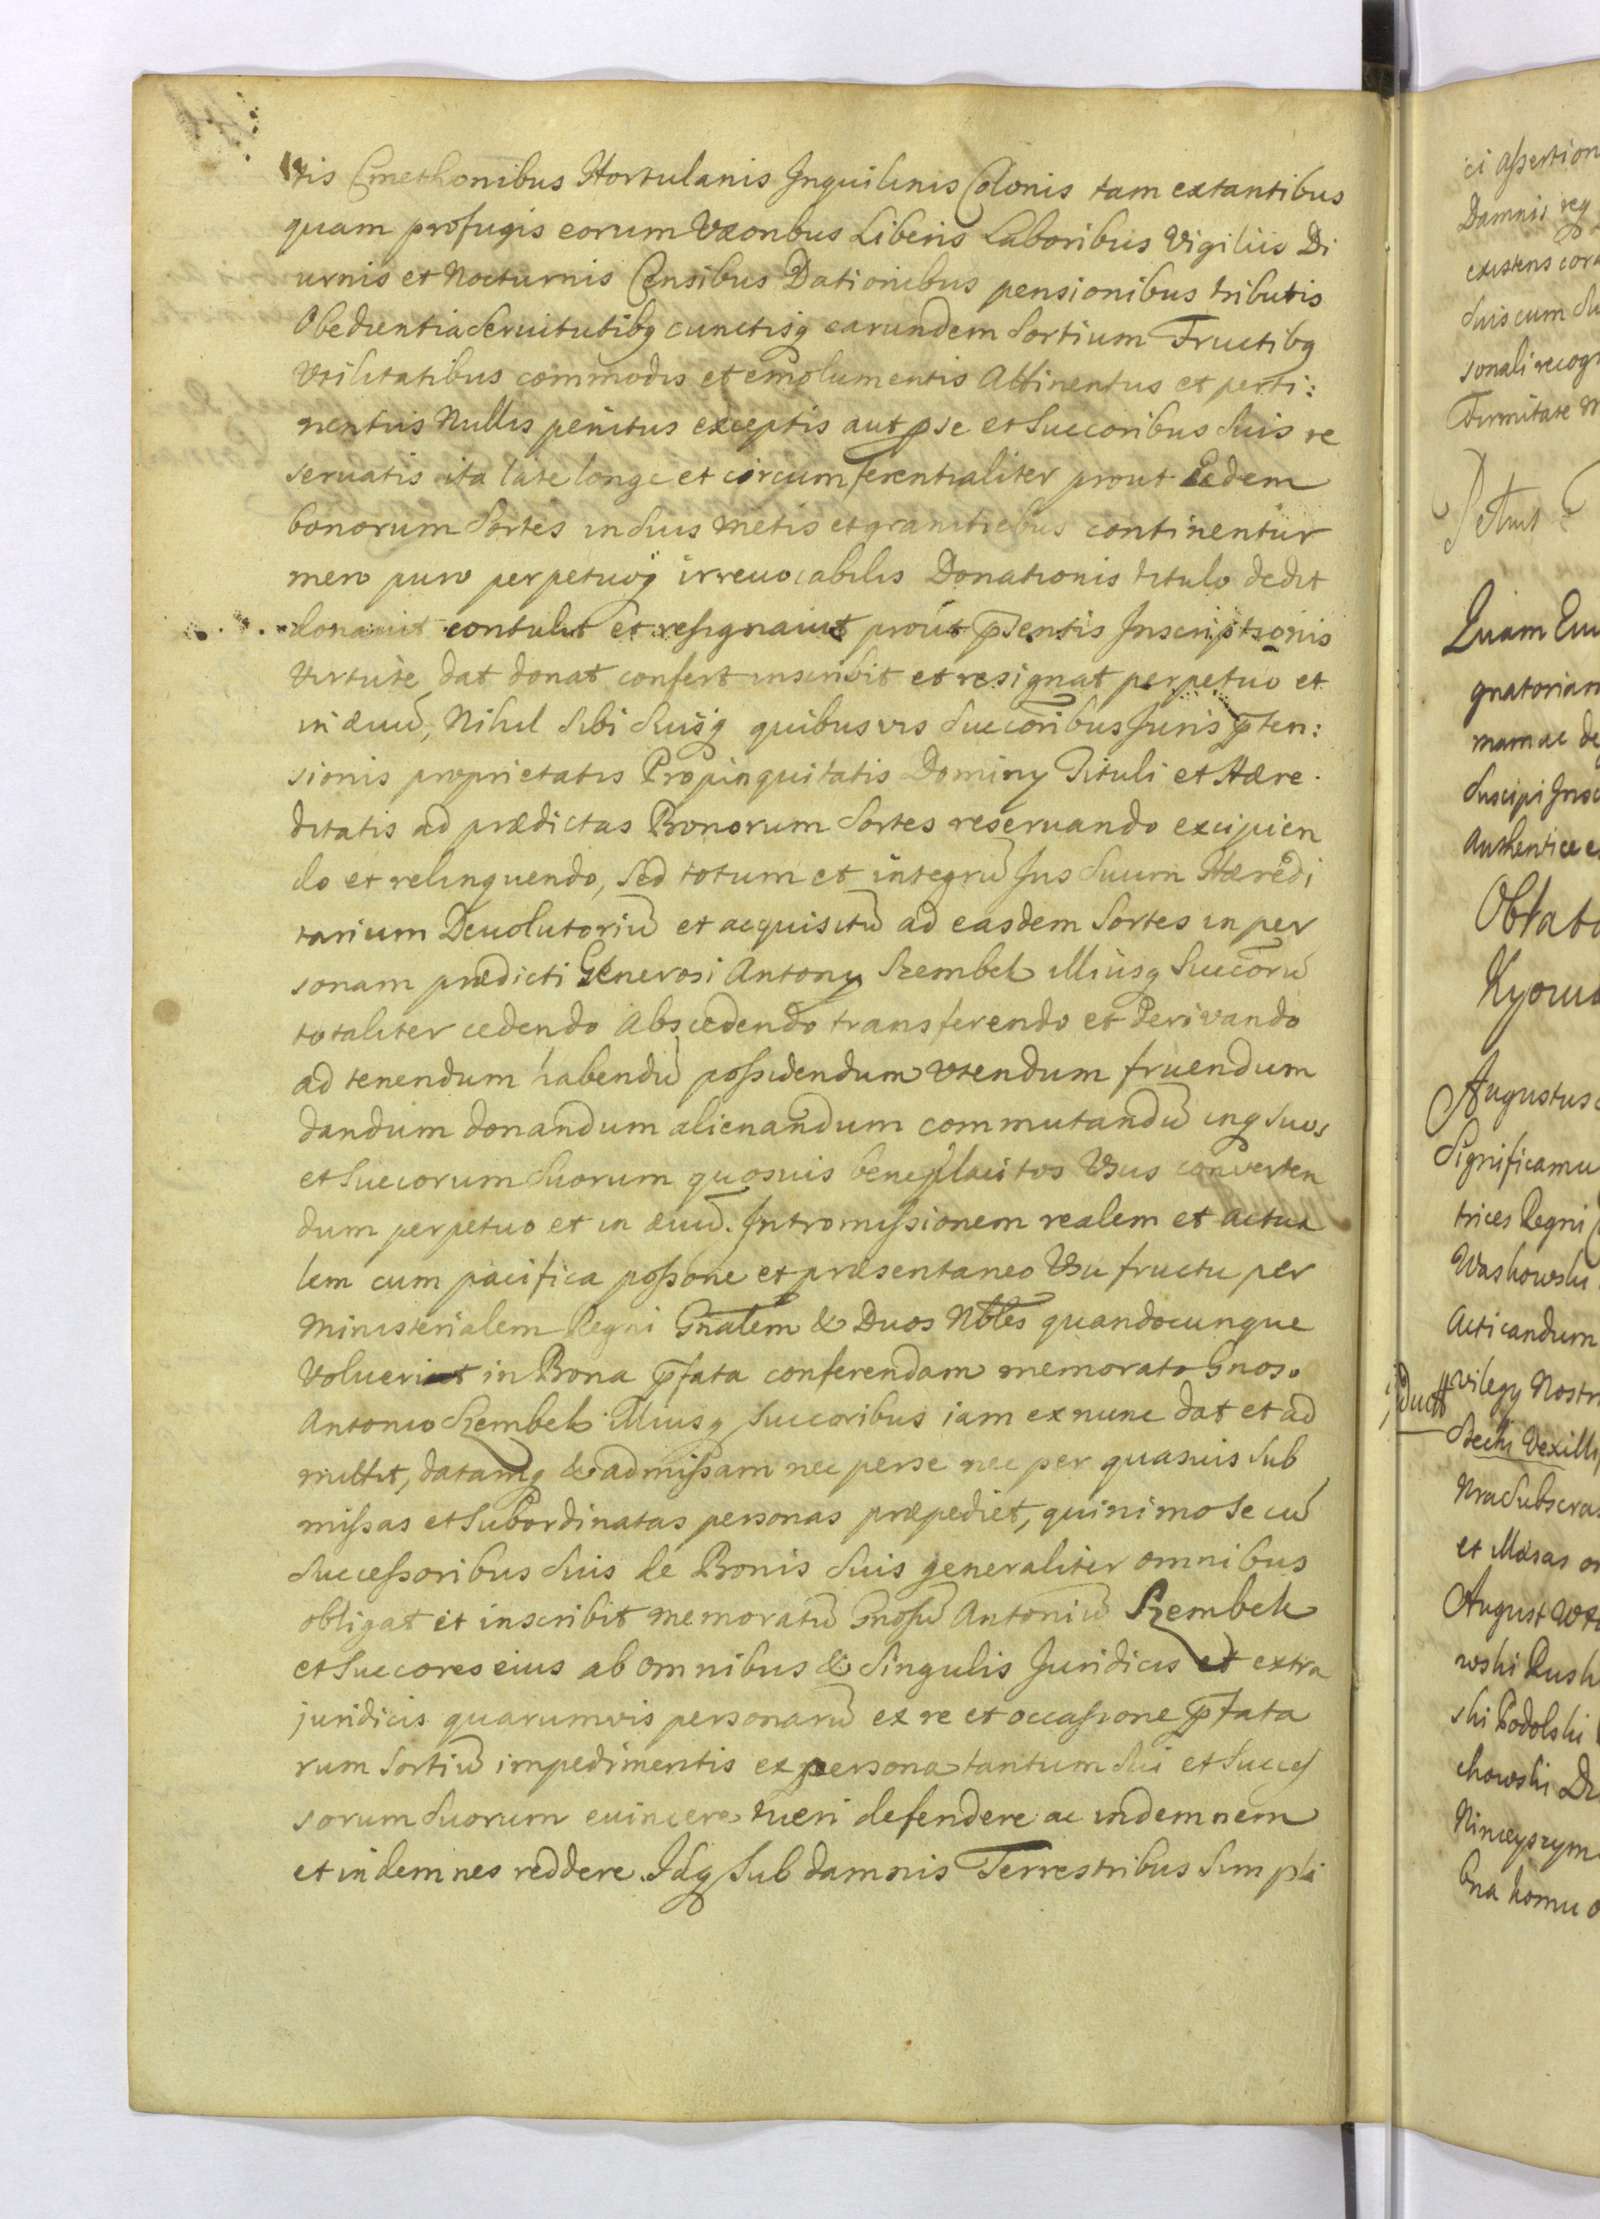 tis Cmethonibus Hortulanis Inquilinis Colonis tam extantibus
quam profugis eorum Uxoribus Liberis Laboribus Vigilijs Di
urnis et Nocturnis Censibus Dationibus pensionibus tributis
Obedientia Seruitutibq cunctisq earundem Sortium Fructibq
Utilitatibus commodis et emolumentis Attinentijs et perti:
nentijs Nullis penitus exceptis aut p se et Succoribus Suis re
seruatis ita late longe et circumferentialiter prout Eædem
bonorum Sortes in suis metis et granitiebus continentur
mero puro perpetuoq irreuocabilis Donationis titulo dedit
donauit contulit et resignauit prout pñtis Inscriptionis
virtute dat donat confert inscribit et resignat perpetuo et
in æuũ, Nihil Sibi Suisq quibusvis Succoribus Juris pten:
sionis proprietatis Propinquitatis Dominy Tituli et Hære
ditatis ad prædictas Bonorum Sortes reseruando excipien
do et relinquendo, Sed totum et integrũ Jus Suum Hæredi
tarium Deuolutoriũ et acquisitũ ad easdem Sortes in per
sonam prædicti Generosi Antony Szembek Illiusq Succorũ
totaliter cedendo Abscedendo transferendo et Derivando
ad tenendum habendũ possidendum vtendum fruendum
dandum donandum alienandum commutandũ inq suos
et Succorum Suorum quosuis beneplacitos Usus converten
dum perpetuo et in æuũ. Intromissionem realem et actua
lem cum pacifica possone et præsentaneo Usu fructu per
Ministerialem Regni Gnalem & Duos Nbles quandocunque
Voluerint in Bona pfata conferendam memorato Gnoso
Antonio Szembek Illiusq Succoribus iam ex nunc dat et ad
mittit, datamq & admissam nec per se nec per quasuis Sub
missas et Subordinatas personas præpediet, quinimo Se cũ
Successoribus Suis de Bonis Suis generaliter omnibus
obligat et inscribit memoratũ Gnosũ Antoniũ Szembek
et Succores eius ab omnibus & Singulis Juridicis et extra
juridicis quarumvis personarũ ex re et occasione pfata
rum Sortiũ impedimentis ex persona tantum Sui et Succes
sorum Suorum euincere tueri defendere ac indemnem
et indemnes reddere. Idq Sub damnis Terrestribus Simpli
ci assertion
Damnis
existens
Suis cum
sonali recog
Quam
gnatoriam
mam ac de
Suscipi
Authentice
Oblata
Kyow
Augustus
Significamu
trices Regni
Waskowski
Acticandum
Induct
vilegy Nostr
Vexilli
et Massas
August
wski Rusk
ski Podolski
chowski